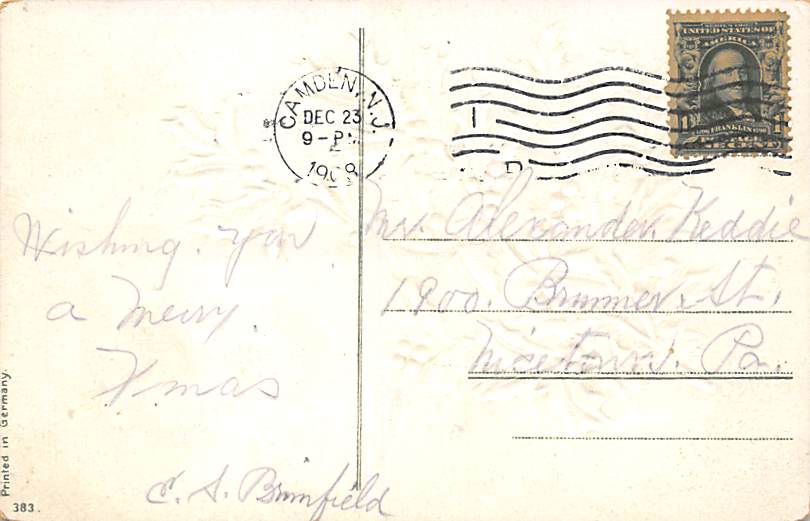 CAMDEN, N.J.
DEC 23
9-P
1908
SERIES 1902
UNITED STATES OF
AMERICA
1 FRANKLIN 1
ONE CENT
Wishing. you
a Merry
Xmas
C. S. Brimfield
Mr. Alexander Keddie
1900. Brunner. St.
Nicetown. Pa.
Printed in Germany.
383.